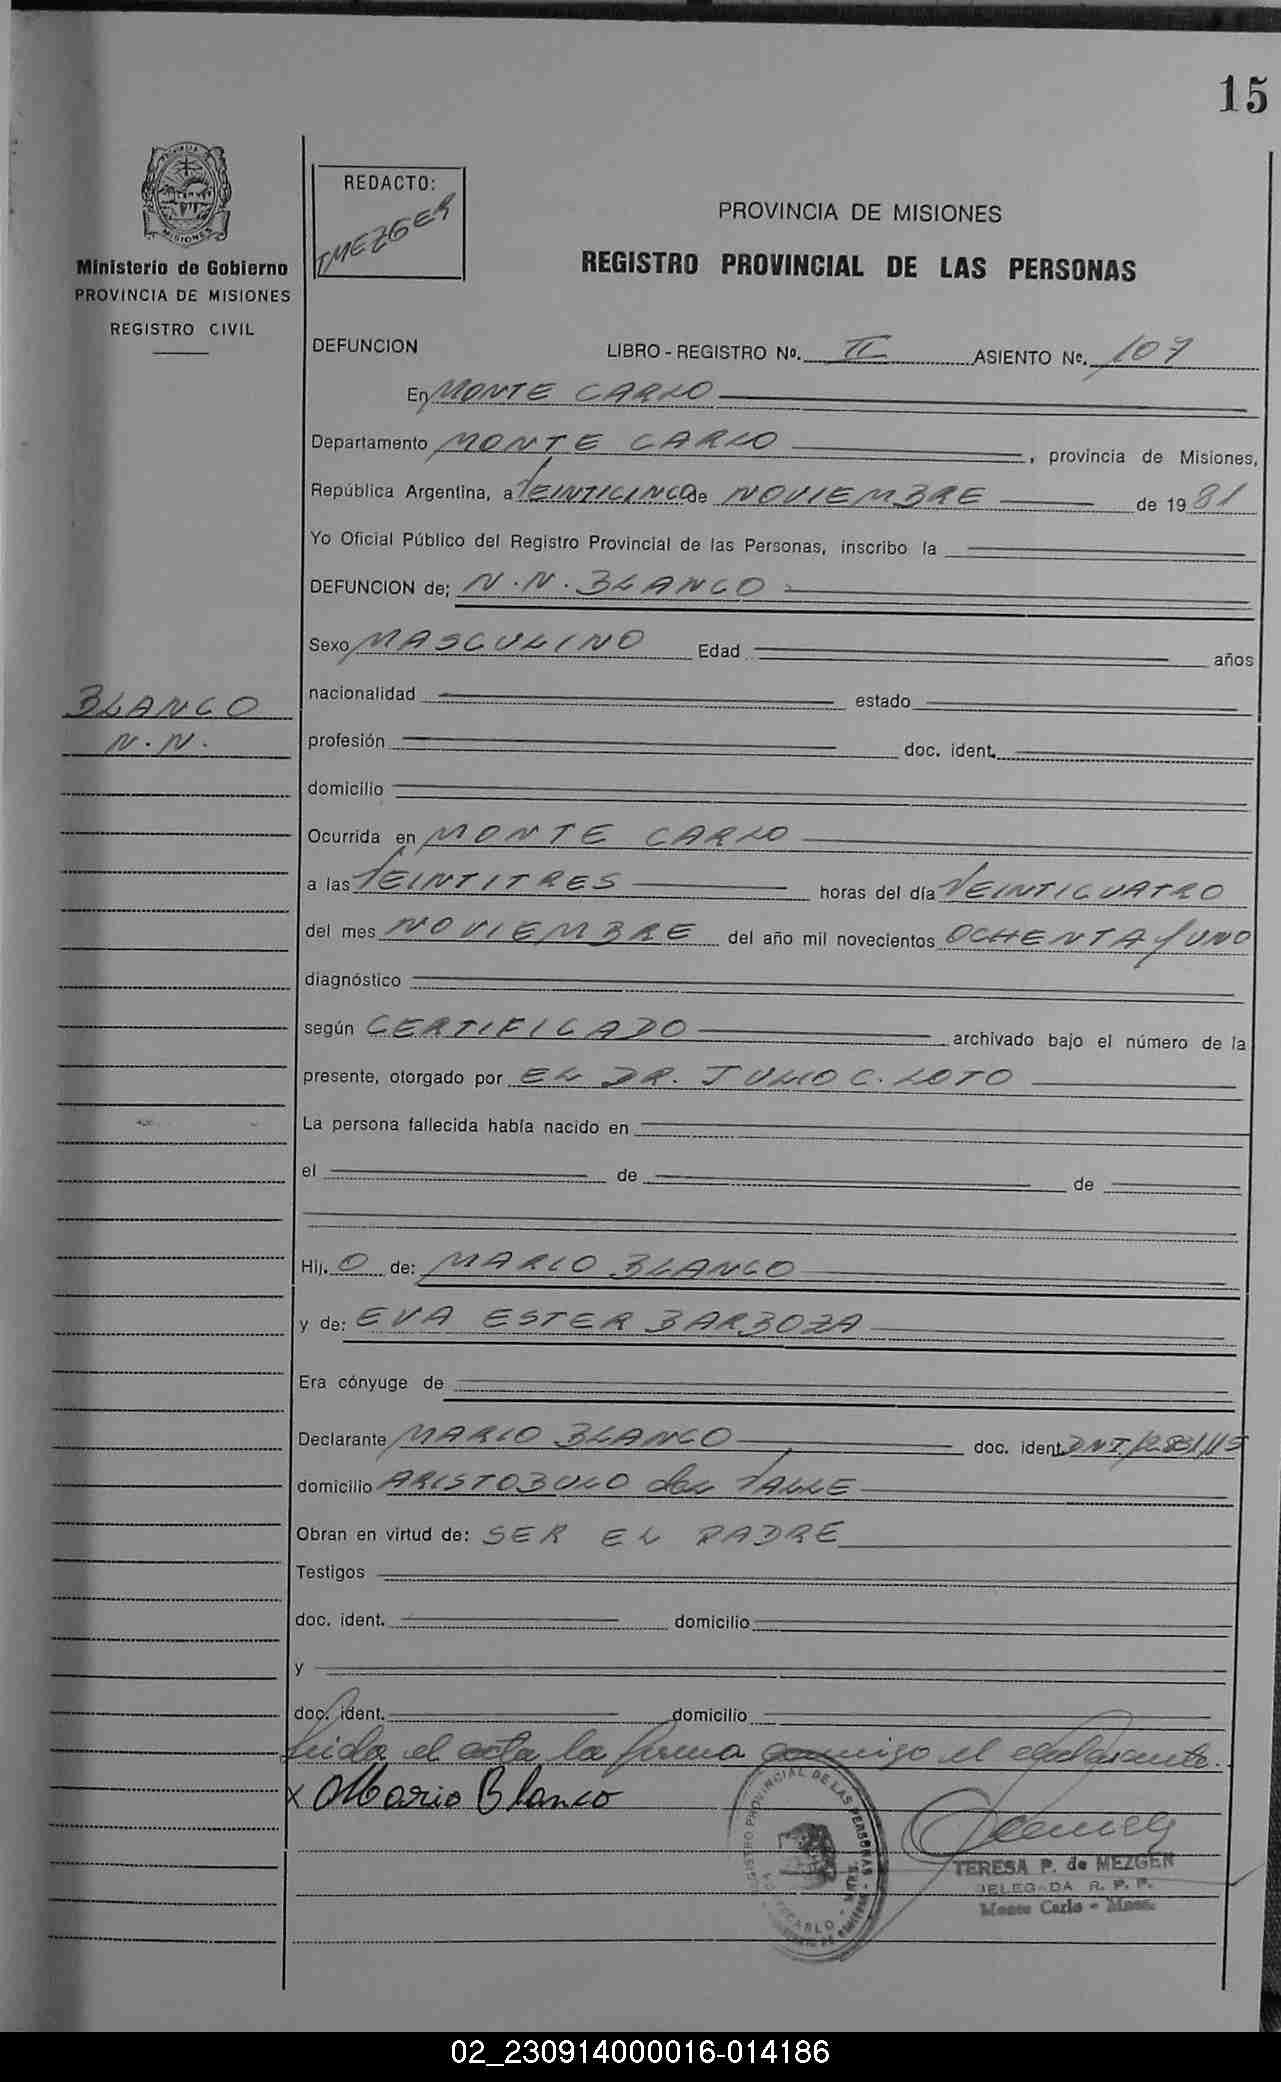 15
REDACTO:
T MEZGER
PROVINCIA DE MISIONES
REGISTRO PROVINCIAL DE LAS PERSONAS
Ministerio de Gobierno
PROVINCIA DE MISIONES
REGISTRO CIVIL
DEFUNCION LIBRO - REGISTRO Nº. II ASIENTO Nº. 107
En MONTE CARLO
Departamento MONTE CARLO, provincia de Misiones,
República Argentina, a VEINTICINCO de NOVIEMBRE de 1981
Yo Oficial Público del Registro Provincial de las Personas, inscribo la
DEFUNCION de; N.N. BLANCO
Sexo MASCULINO Edad años
nacionalidad estado
BLANCO
N.N.
profesión doc. ident.
domicilio
Ocurrida en MONTE CARLO
a las VEINTITRES horas del día VEINTICUATRO
del mes NOVIEMBRE del año mil novecientos OCHENTA y UNO
diagnóstico
según CERTIFICADO archivado bajo el número de la
presente, otorgado por EL DR. JULIO C. LOTO
La persona fallecida había nacido en
el de de
Hij. O de: MARIO BLANCO
y de: EVA ESTER BARBOZA
Era cónyuge de
Declarante MARIO BLANCO doc. ident.
domicilio ARISTOBULO del VALLE
Obran en virtud de: SER EL PADRE
Testigos
doc. ident. domicilio
y
doc. ident. domicilio
leida el acta la firma conmigo el declarante.
x Mario Blanco
REGISTRO PROVINCIAL DE LAS PERSONAS
TERESA P. de MEZGER
DELEGADA R. P. P.
Monte Carlo - Mnes.
02_230914000016-014186